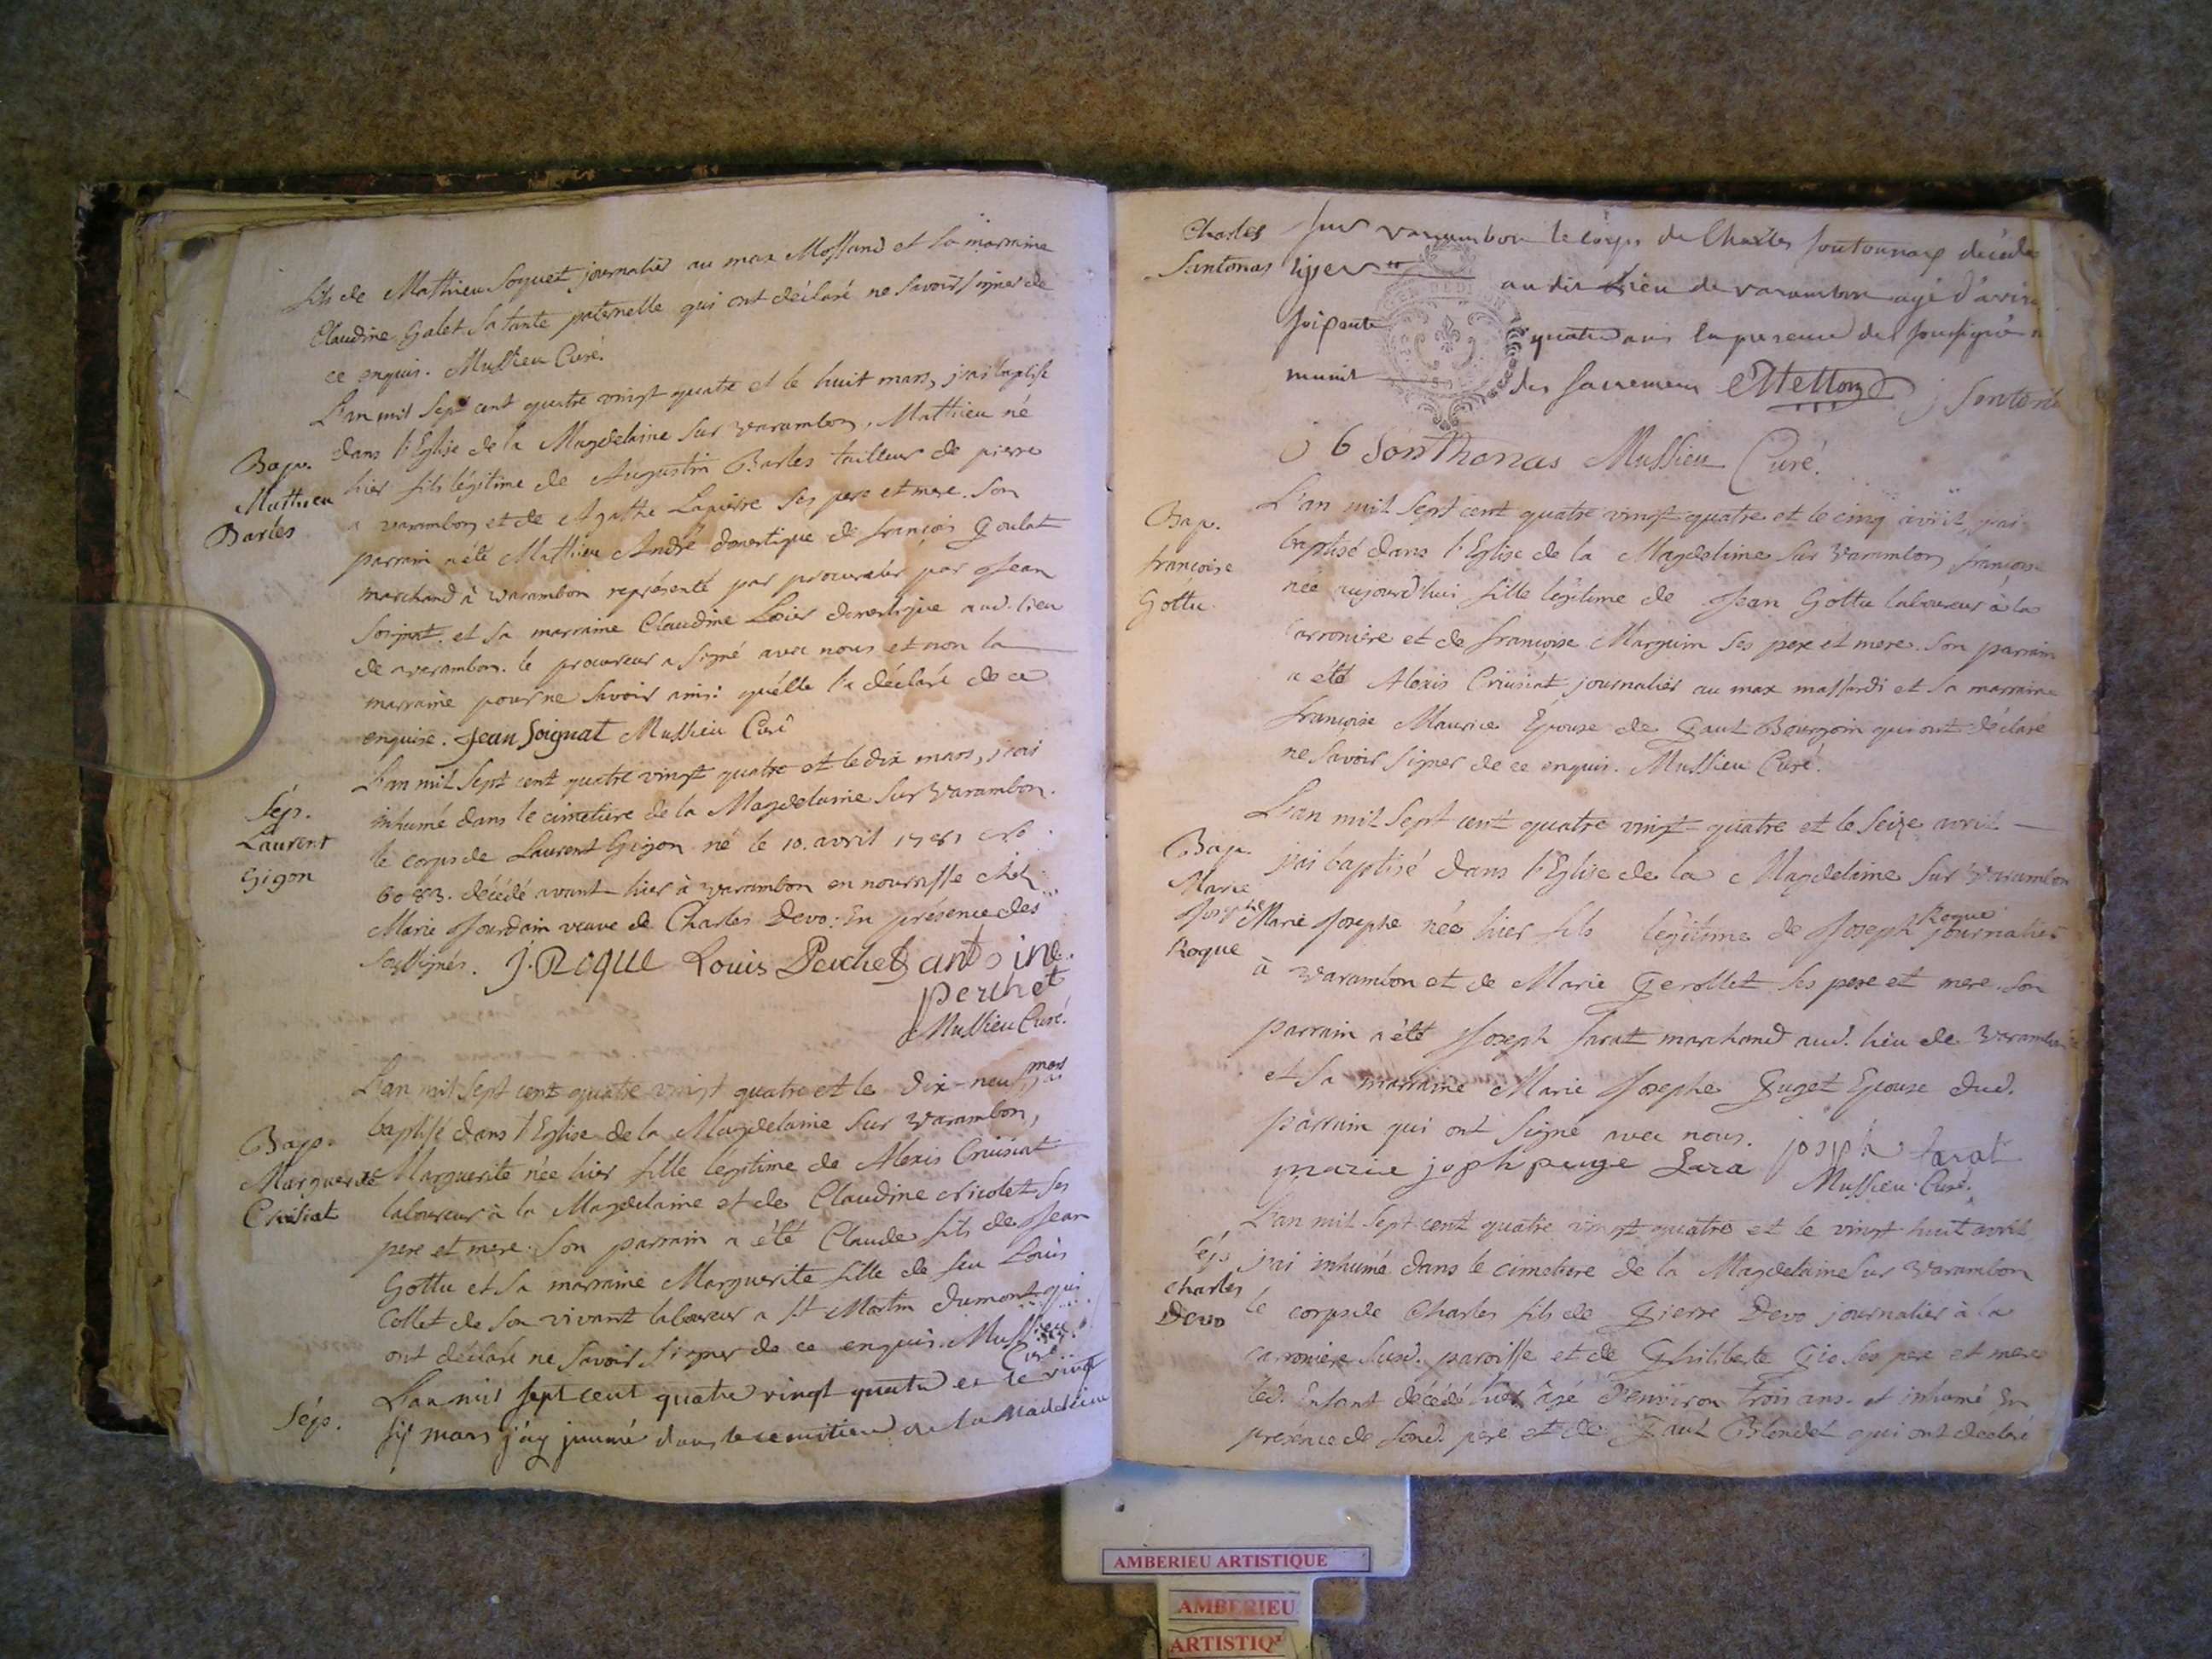 fils de Mathieu Soquet journalier au max Mossand et sa marraine
Claudine Galet sa tante paternelle qui ont déclaré ne savoir signer de
ce enquis. Mussieu Curé.
L'an mil sept cent quatre vingt quatre et le huit mars, j'ai baptisé
Bap.
Mathieu
Barles
dans l'Eglise de la Magdelaine sur varambon, Mathieu né
hier fils légitime de Augustin Barles tailleur de pierre
a varambon et de Agathe Lapierre ses pere et mere. son
parrain a été Mathieu André domestique de françois Goulat
marchand à varambon représenté par procureur par Jean
Soignat. et sa marraine Claudine Loier domestique aud. lieu
de varambon. le procureur a signé avec nous et non la
marraine pour ne savoir ainsi qu'elle l'a déclaré de ce
enquise. Jean Soignat Mussieu Curé
L'an mil sept cent quatre vingt quatre et le dix mars, j'ai
Sép.
Laurent
Gigon
inhumé dans le cimetiere de la Magdelaine sur varambon.
le corps de Laurent Gigon né le 10. avril 1781 No
6083. décédé avant-hier à varambon en nourrisse chez
Marie Jourdain veuve de Charles Devo. En présence des
soussignés. J. Roque Louis Perchet antoine
perchet
Mussieu Curé.
L'an mil sept cent quatre vingt quatre et le dix-neuf mars
Bap.
Marguerite
Criusiat
baptisé dans l'Eglise de la Magdelaine sur varambon,
Marguerite née hier fille légitime de Alexis Criusiat
laboureur à la Magdelaine et de Claudine Nicolet ses
pere et mere. Son parrain a été Claude fils de Jean
Gottu et sa marraine Marguerite fille de feu Louis
Collet de son vivant laboureur a St Martin dumont qui
ont déclaré ne savoir signer de ce enquis. Mussieu
Curé
Sép.
L'an mil sept cent quatre vingt quatre et le vingt
six mars j'ay inumé dans le cemitiere de la Madeleine
Charles
Santonas
sur varambon le corps de Charles décédé
au dit Lieu de varambon agé d'aviron
soixante quatre ans en presence des soussignés
munit des sacremens
Sonthonas Mussieu Curé.
Bap.
françoise
Gottu.
L'an mil sept cent quatre vingt quatre et le cinq avril, j'ai
baptisé dans l'Eglise de la Magdelaine sur varambon françoise
née aujourd'hui fille légitime de Jean Gottu laboureur à la
carroniere et de françoise Marguin ses pere et mere. Son parrain
a été Alexis Criusiat journalier au max massardi et sa marraine
françoise Maurice Epouse de Paul Bourgoin qui ont déclaré
ne savoir signer de ce enquis. Mussieu Curé.
L'an mil sept cent quatre vingt quatre et le seize avril
Bap.
Marie
Josephe
Roque
j'ai baptisé dans l'Eglise de la Magdelaine sur varambon
Marie Josephe née hier fils légitime de Joseph Roque journalier
à varambon et de Marie Perollet ses pere et mere. son
parrain a été Joseph Sarat marchand aud. lieu de varambon
et sa marraine Marie Josephe Puget Epouse dud.
parrain qui ont signé avec nous.
marie joph puge Sara joseph Sarat
Mussieu Curé.
L'an mil sept cent quatre vingt quatre et le vingt huit avril
Sép.
charles
Devo
j'ai inhumé dans le cimetiere de la Magdelaine sur varambon
le corps de Charles fils de Pierre Devo journalier à la
carroniere susd. paroisse et de Philiberte Pio ses pere et mere
led. Enfant décédé hier agé d'environ trois ans. et inhumé En
présence de sond. père et de Paul Blondet qui ont déclaré
AMBERIEU ARTISTIQUE
AMBERIEU
ARTISTIQ